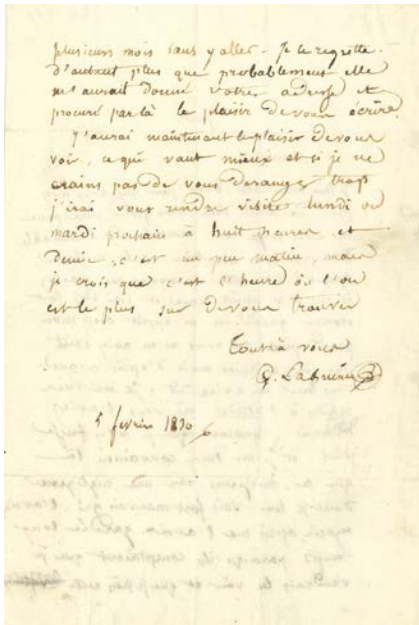 plusieurs mois sans y aller. Je le regrette
d'autant plus que probablement elle
m'aurait donné votre adresse et
procuré par là le plaisir de vous écrire.
J'aurai maintenant le plaisir de vous
voir, ce qui vaut mieux et si je ne
crains pas de vous deranger trop
j'irai vous rendre visite lundi ou
mardi prochain à huit heures et
demie, c'est un peu matin, mais
je crois que c'est l'heure où l'on
est le plus sur de vous trouver
Tout à vous
5 fevrier 1830